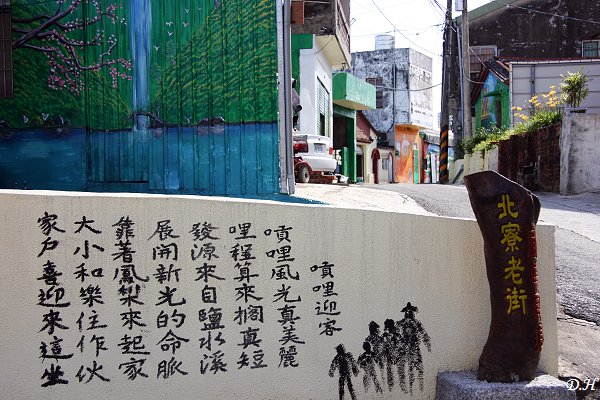 嗊哩迎客
嗊哩風光真美麗
哩程算來擱真短
發源來自鹽水溪
展開新光的命脈
靠著鳳梨來起家
大小和樂住作伙
家戶喜迎來這坐
北寮老街
D.H